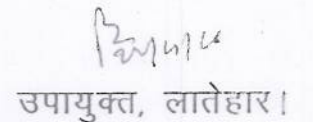 उपायुक्त, लातेहार।